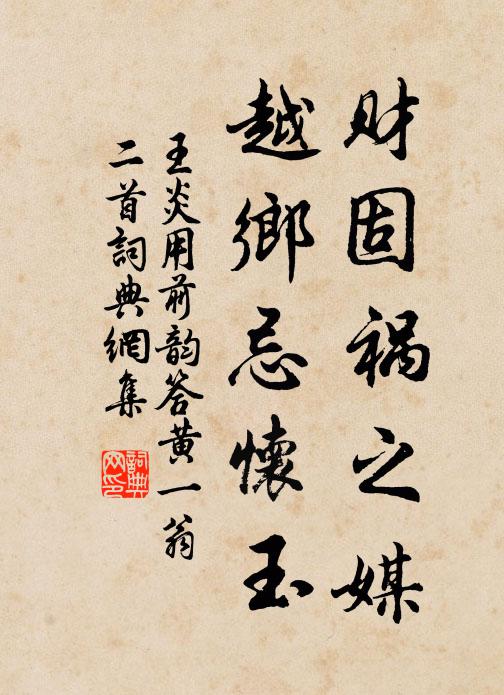 财固祸之媒
越鄉忌懷玉
王炎用前韵答黄一翁
二首詞典網集
詞典網印